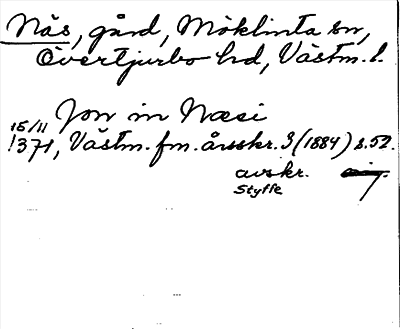 Näs, gård, Möklinta sn,
Övertjurbo hd, Västm. l.
Jon in Næsi
15/11
1371, Västm. fm. årsskr. 3 (1884) s. 52.
avskr.
Styffe